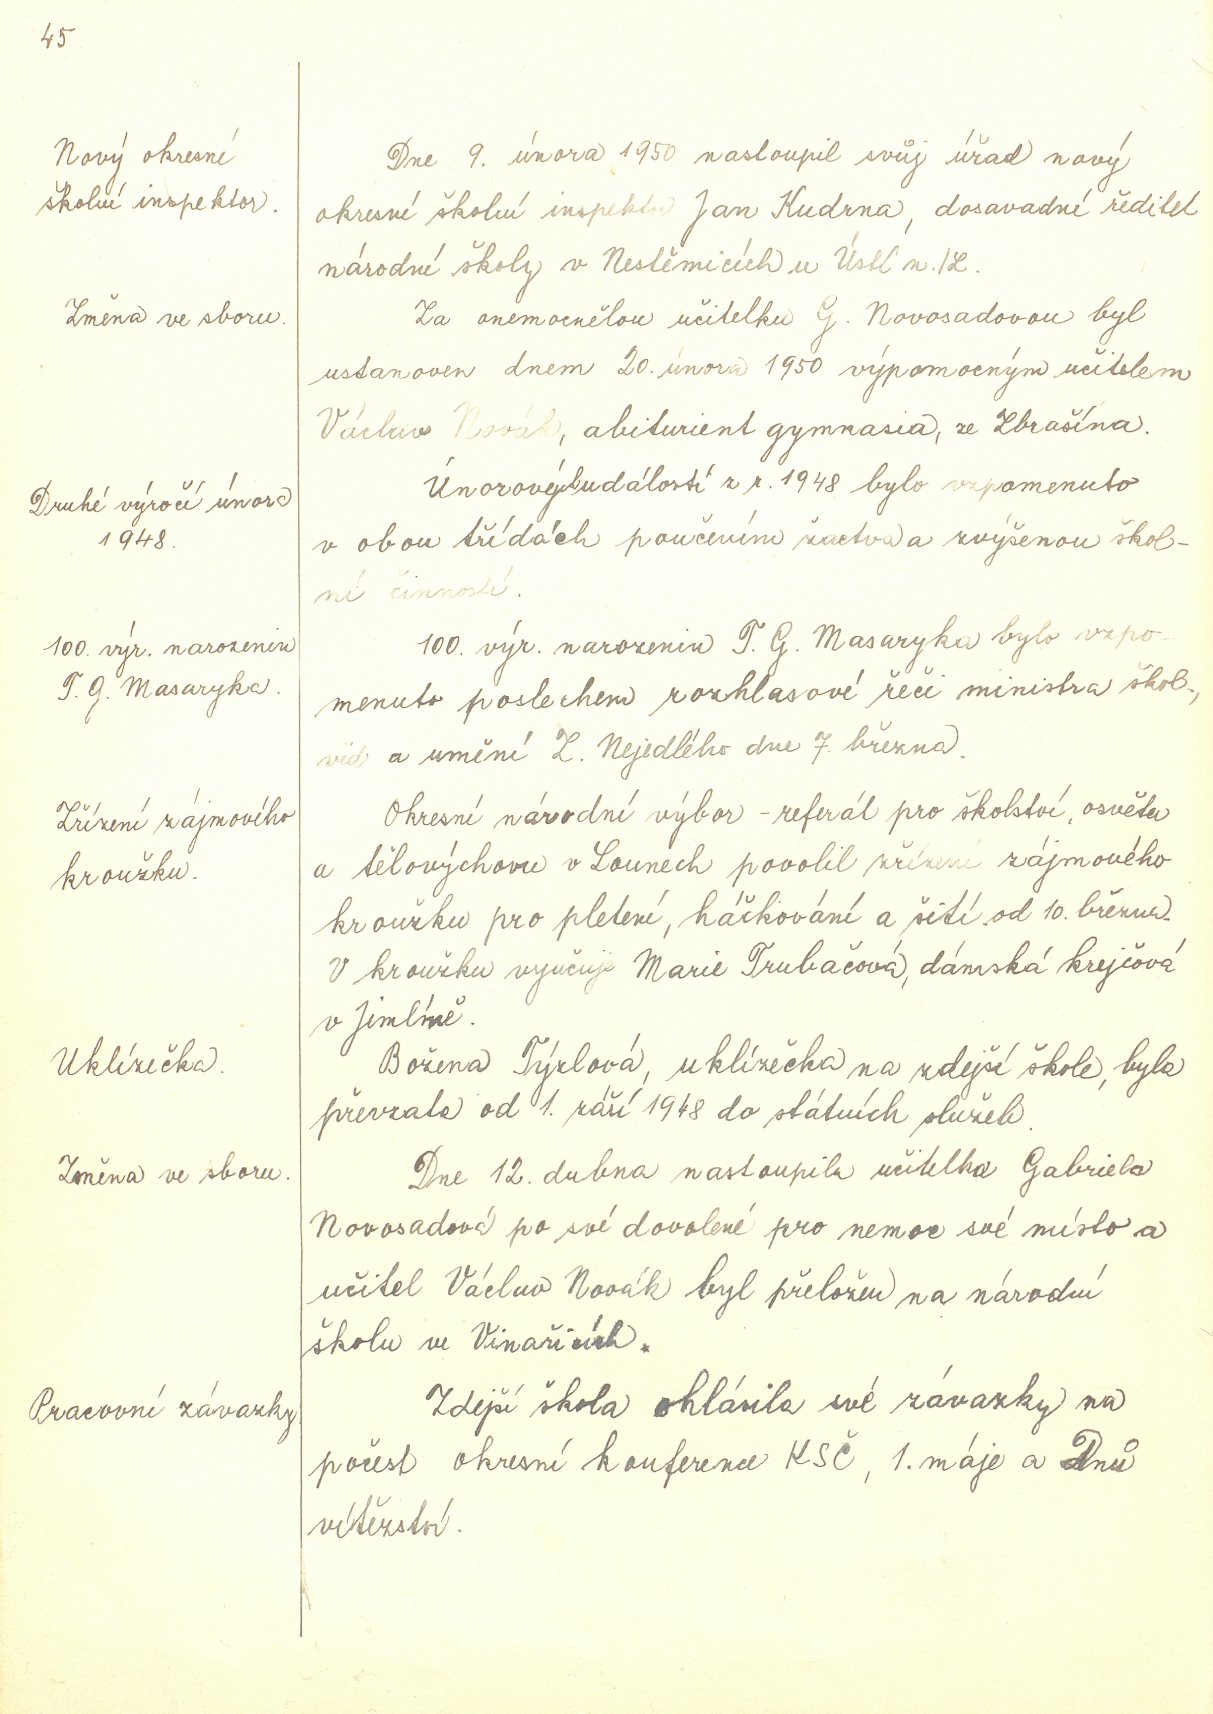 45
Nový okresní
školní inspektor.
Dne 9. února 1950 nastoupil svůj úřad nový
okresní školní inspektor Jan Kudrna, dosavadní ředitel
národní školy v Nestěmicích u Ústí n./L.
Změna ve sboru.
Za onemocnělou učitelku G. Novosadovou byl
ustanoven dnem 20. února 1950 výpomocným učitelem
Václav Novák, abiturient gymnasia, ze Zbrašína.
Druhé výročí února
1948.
Únorových událostí z r. 1948 bylo vzpomenuto
v obou třídách poučením žactva a zvýšenou škol-
ní činností.
100. výr. narozenin
T. G. Masaryka.
100. výr. narozenin T. G. Masaryka bylo vzpo-
menuto poslechem rozhlasové řeči ministra škol-,
věd a umění Z. Nejedlého dne 7. března.
Zřízení zájmového
kroužku.
Okresní národní výbor - referát pro školství, osvětu
a tělovýchovu v Lounech povolil zřízení zájmového
kroužku pro pletení, háčkování a šití od 10. března.
V kroužku vyučuje Marie Trubačová, dámská krejčová
v Jimlíně.
Uklízečka.
Božena Týzlová, uklízečka na zdejší škole, byla
převzata od 1. září 1948 do státních služeb.
Změna ve sboru.
Dne 12. dubna nastoupila učitelka Gabriela
Novosadová po své dovolené pro nemoc své místo a
učitel Václav Novák byl přeložen na národní
školu ve Vinařicích.
Pracovní závazky
Zdejší škola ohlásila své závazky na
počest okresní konference KSČ, 1. máje a Dnů
vítězství.